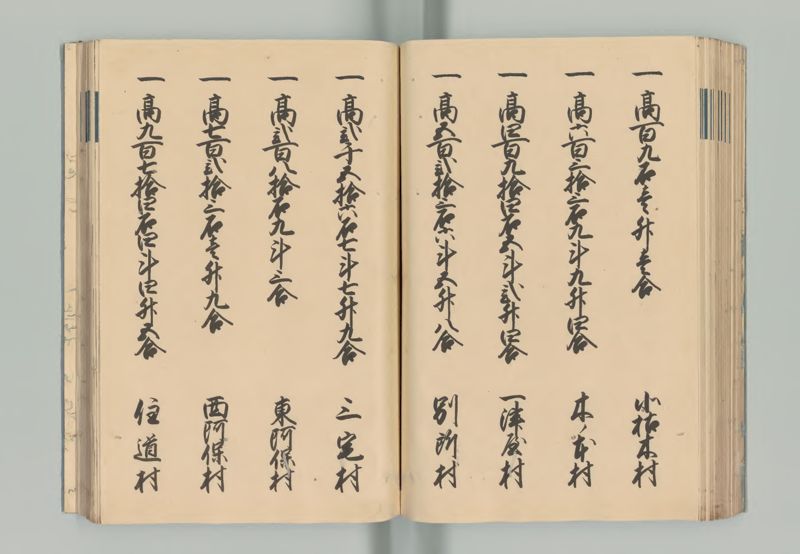 一 高百九石壱升壱合 小柘木村
一 高六百三拾三石九斗九升四合 木ノ本村
一 高四百九拾四石五斗弐升四合 一津屋村
一 高五百弐拾三石六斗五升八合 別所村
一 高弐千五拾六石七斗七升九合 三宅村
一 高弐百八拾石九斗三合 東阿保村
一 高七百弐拾三石壱升九合 西阿保村
一 高九百七拾四石四斗四升五合 住道村